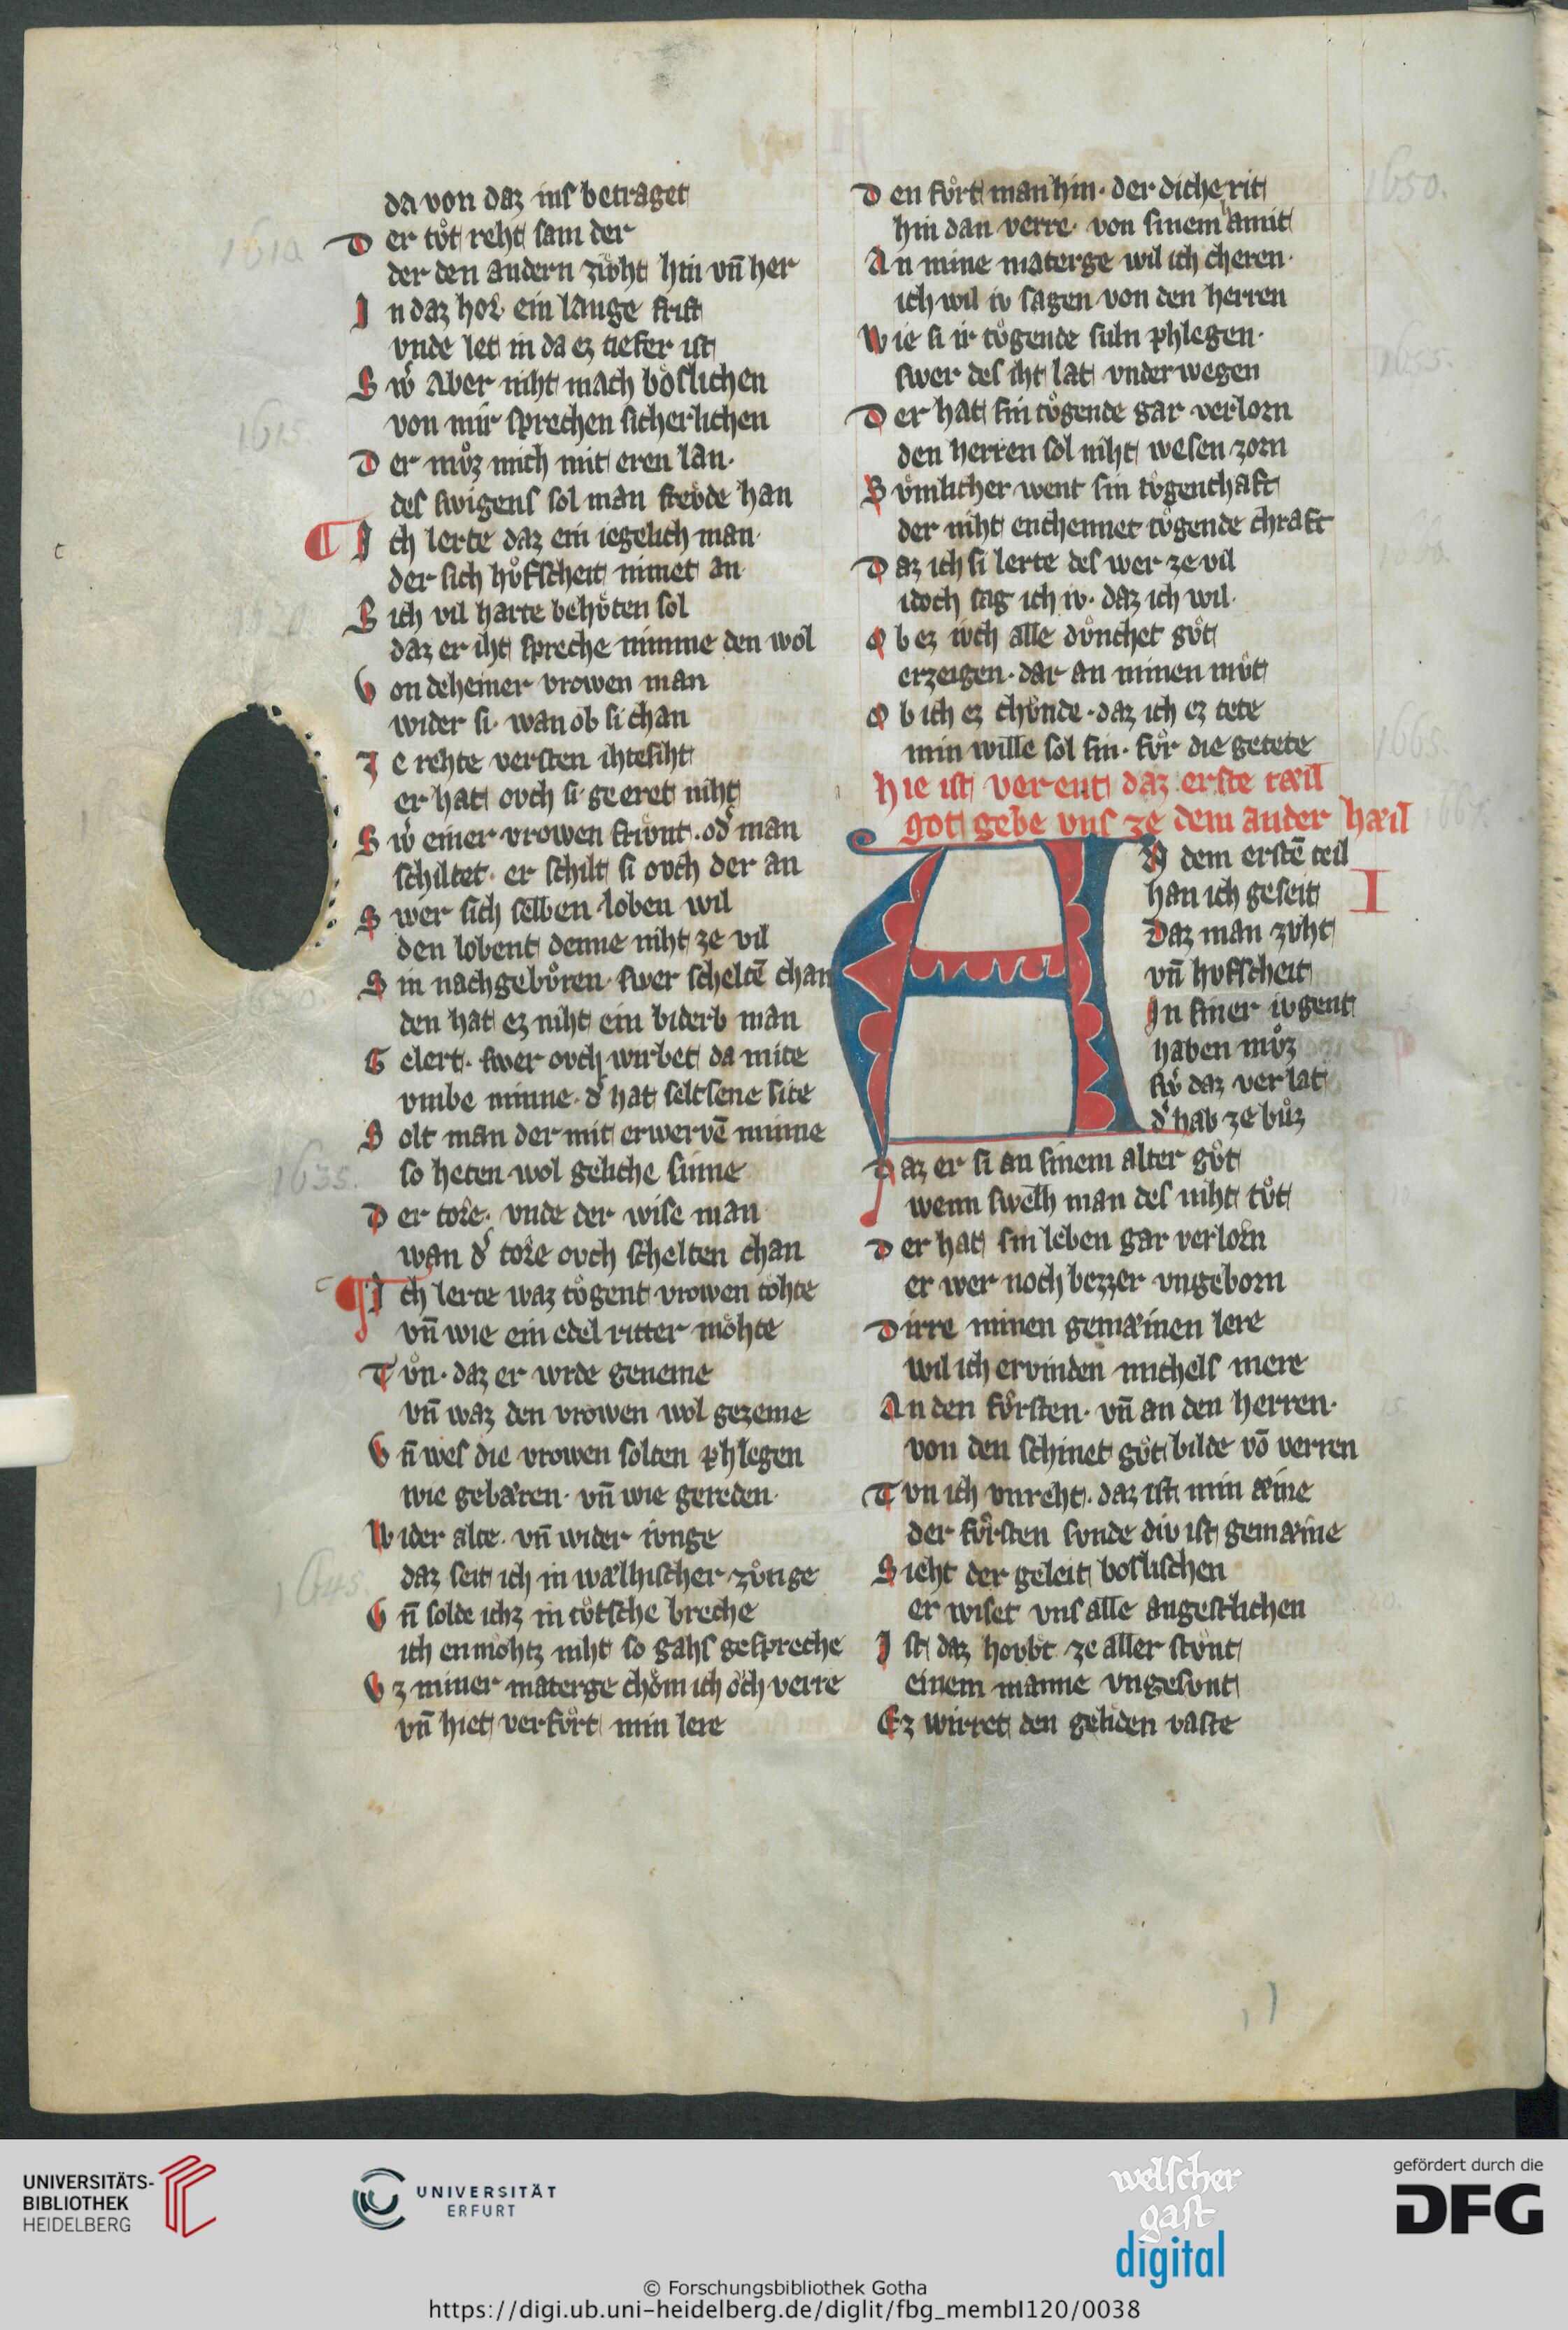 da von daz inſ betraget
D er tuͦt reht ſam der
der den andern ziuht hin vn̄ her
J n daz hol· ein lange friſt
vnde let in da ez tiefer iſt
S wˀ aber niht mach boͤſlichen
von mir ſprechen ſicherlichen
D er muͦz mich mit eren lan·
deſ ſwigenſ ſol man freude han
J ch lerte daz ein iegelich man·
der ſich huͦfſcheit nimet an·
S ich vil harte behuͦten ſol
daz er iht ſpreche nimme den wol
V on deheiner vrowen man
wider ſi· wan ob ſi chan
J e rehte verſten ihteſiht
er hat ovch ſi geeret niht
S wˀ einer vrowen friunt· odˀ man
ſchiltet· er ſchilt ſi ovch der an
S wer ſich ſelben loben wil
den lobent denne niht ze vil
S in nachgebuͦren· ſwer ſcheltē chan
den hat ez niht ein biderb man
G elert· ſwer ovch wirbet da mite
vmbe minne· dˀ hat ſeltſene ſite
S olt man der mit erwervē minne
ſo heten wol geliche ſinne
D er tore· vnde der wiſe man
wan dˀ tore ovch ſchelten chan
J ch lerte waz tuͦgent vrowen tohte
vn̄ wie ein edel ritter moͤhte
T uͦn· daz er wrde geneme
vn̄ waz den vrowen wol gezeme
V n̄ weſ die vrowen ſolten phlegen
wie gebaren· vn̄ wie gereden·
W ider alte· vn̄ wider iunge
daz ſeit ich in wælhiſcher zuͦnge
V n̄ ſolde ichz in tuͦtſche breche
ich enmohtz niht ſo gahſ geſpreche
V z miner materge choͤm ich och verre
vn̄ hiet verfuͦrt min lere
D en fuͦrt man hin· der diche rit
hin dan verre· von ſinem amit
A n mine materge wil ich cheren·
ich wil iv ſagen von den herren
W ie ſi ir tuͦgende ſuln phlegen·
ſwer deſ iht lat vnder wegen
D er hat ſin tuͦgende gar verlorn
den herren ſol niht weſen zorn
S uͦmlicher went ſin tuͦgenthaft
der niht enchennet tuͦgende chraft
D az ich ſi lerte deſ wer ze vil
idoch ſag ich iv· daz ich wil·
O b ez ivch alle duͦnchet guͦt
erzeigen· dar an minen muͦt
O b ich ez chuͦnde· daz ich ez tete
min wille ſol ſin· fuͦr die getete
hie iſt verent daz erſte tæil
got gebe vnſ ze dem ander hæil
A N dem erſtē teil
han ich geſeit
I
Daz man zvht
vn̄ hvfſcheit
Jn ſiner ivgent
haben muͦz
ſwˀ daz verlat
dˀ hab ze buͦz
D az er ſi an ſinem alter guͦt
wenn ſwelh man deſ niht tuͦt
D er hat ſin leben gar verlorn
er wer noch bezzer vngeborn
D irre minen gemæinen lere
wil ich ervinden michelſ mere
A n den fuͦrſten· vn̄ an den herren·
von den ſchinet guͦt bilde vō verren
T vn ich vnreht· daz iſt min æine
der fuͦrſten ſvnde div iſt gemæine
S icht der geleit boſliſchen
er wiſet vnſ alle angeſtlichen
J ſt daz hovbt ze aller ſtuͦnt
einem manne vngeſvnt
E z wirret den geliden vaſte
UNIVERSITÄTS-
BIBLIOTHEK
HEIDELBERG
UNIVERSITÄT
ERFURT
welscher
gast
digital
gefördert durch die
DFG
© Forschungsbibliothek Gotha
https://digi.ub.uni-heidelberg.de/diglit/fbg_membI120/0038